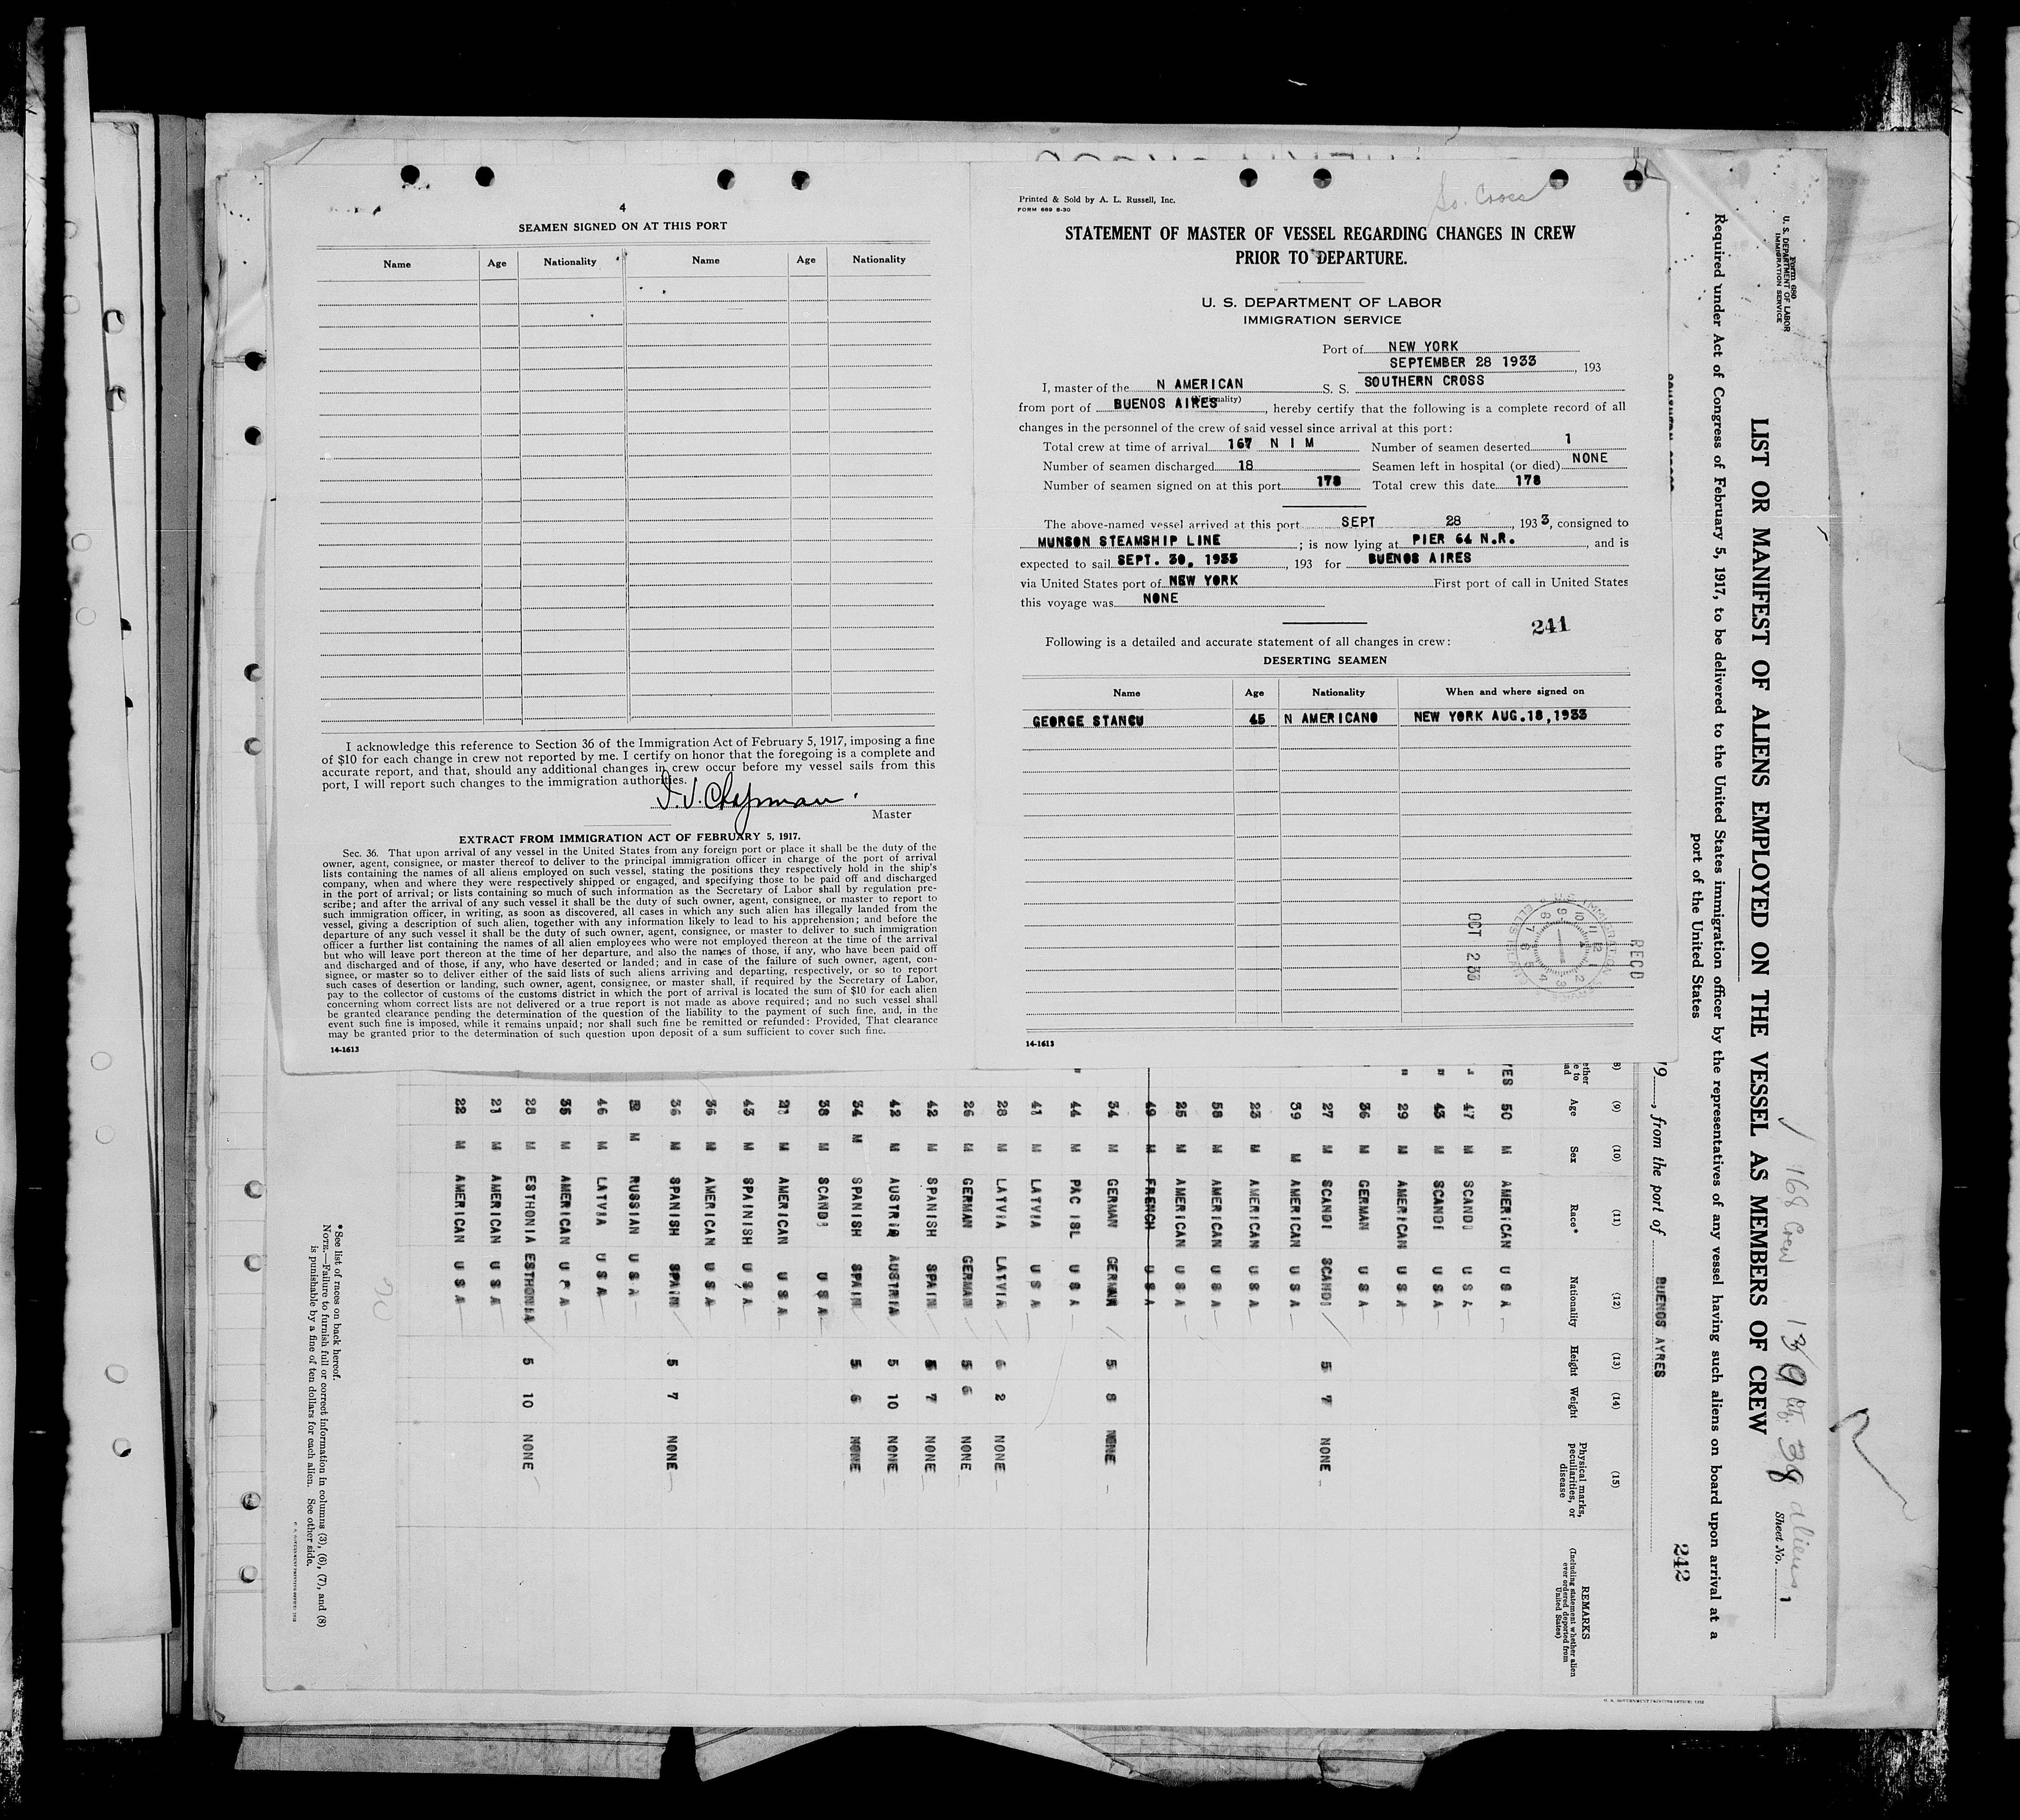 4
SEAMEN SIGNED ON AT THIS PORT
Name Age Nationality Name Age Nationality
I acknowledge this reference to Section 36 of the Immigration Act of February 5, 1917, imposing a fine
of $10 for each change in crew not reported by me. I certify on honor that the foregoing is a complete and
accurate report, and that, should any additional changes in crew occur before my vessel sails from this
port, I will report such changes to the immigration authorities.
Chapman
Master
EXTRACT FROM IMMIGRATION ACT OF FEBRUARY 5, 1917.
Sec. 36. That upon arrival of any vessel in the United States from any foreign port or place it shall be the duty of the
owner, agent, consignee, or master thereof to deliver to the principal immigration officer in charge of the port of arrival
lists containing the names of all aliens employed on such vessel, stating the positions they respectively hold in the ship's
company, when and where they were respectively shipped or engaged, and specifying those to be paid off and discharged
in the port of arrival; or lists containing so much of such information as the Secretary of Labor shall by regulation pre-
scribe; and after the arrival of any such vessel it shall be the duty of such owner, agent, consignee, or master to report to
such immigration officer, in writing, as soon as discovered, all cases in which any such alien has illegally landed from the
vessel, giving a description of such alien, together with any information likely to lead to his apprehension; and before the
departure of any such vessel it shall be the duty of such owner, agent, consignee, or master to deliver to such immigration
officer a further list containing the names of all alien employees who were not employed thereon at the time of the arrival
but who will leave port thereon at the time of her departure, and also the names of those, if any, who have been paid off
and discharged and of those, if any, who have deserted or landed; and in case of the failure of such owner, agent, con-
signee, or master so to deliver either of the said lists of such aliens arriving and departing, respectively, or so to report
such cases of desertion or landing, such owner, agent, consignee, or master shall, if required by the Secretary of Labor,
pay to the collector of customs of the customs district in which the port of arrival is located the sum of $10 for each alien
concerning whom correct lists are not delivered or a true report is not made as above required; and no such vessel shall
be granted clearance pending the determination of the question of the liability to the payment of such fine, and, in the
event such fine is imposed, while it remains unpaid; nor shall such fine be remitted or refunded: Provided, That clearance
may be granted prior to the determination of such question upon deposit of a sum sufficient to cover such fine.
14-1613
So. Cross
Printed & Sold by A. L. Russell, Inc.
FORM 689 8-30
STATEMENT OF MASTER OF VESSEL REGARDING CHANGES IN CREW
PRIOR TO DEPARTURE.
U. S. DEPARTMENT OF LABOR
IMMIGRATION SERVICE
Port of NEW YORK
SEPTEMBER 28 1933, 193
I, master of the N AMERICAN S. S. SOUTHERN CROSS
(Nationality)
from port of BUENOS AIRES, hereby certify that the following is a complete record of all
changes in the personnel of the crew of said vessel since arrival at this port:
Total crew at time of arrival 167 N I M Number of seamen deserted 1
Number of seamen discharged 18 Seamen left in hospital (or died) NONE
Number of seamen signed on at this port 178 Total crew this date 178
The above-named vessel arrived at this port SEPT 28, 1933, consigned to
MUNSON STEAMSHIP LINE; is now lying at PIER 64 N.R., and is
expected to sail SEPT. 30, 1933, 193 for BUENOS AIRES
via United States port of NEW YORK First port of call in United States
this voyage was NONE
241
Following is a detailed and accurate statement of all changes in crew:
DESERTING SEAMEN
Name Age Nationality When and where signed on
GEORGE STANCU 45 N AMERICANO NEW YORK AUG.18,1933
RECD
OCT 2 33
14-1613
Form 680
U. S. DEPARTMENT OF LABOR
IMMIGRATION SERVICE
168 Crew 139 Ctz. 38 aliens
Sheet No. 1
LIST OR MANIFEST OF ALIENS EMPLOYED ON THE VESSEL AS MEMBERS OF CREW
Required under Act of Congress of February 5, 1917, to be delivered to the United States immigration officer by the representatives of any vessel having such aliens on board upon arrival at a
port of the United States
242
19, from the port of BUENOS AYRES
(9) (10) (11) (12) (13) (14) (15)
Age Sex Race* Nationality Height Weight Physical marks, peculiarities, or disease REMARKS
(Including statement whether alien ever ordered deported from United States)
YES 50 M AMERICAN U S A
" 47 M SCANDI U S A
" 43 M SCANDI U S A
" 29 M AMERICAN U S A
36 M GERMAN U S A
27 M SCANDI SCANDI 5 7 NONE
39 M AMERICAN U S A
23 M AMERICAN U S A
58 M AMERICAN U S A
25 M AMERICAN U S A
49 M FRENCH U S A
34 M GERMAN GERMAN 5 8 NONE
" 44 M PAC ISL U S A
41 M LATVIA U S A
28 M LATVIA LATVIA 6 2 NONE
26 M GERMAN GERMAN 5 6 NONE
42 M SPANISH SPAIN 5 7 NONE
42 M AUSTRIA AUSTRIA 5 10 NONE
34 M SPANISH SPAIN 5 6 NONE
38 M SCANDI U S A
21 M AMERICAN U S A
43 M SPAINISH U S A
36 M AMERICAN U S A
36 M SPANISH SPAIN 5 7 NONE
M RUSSIAN U S A
46 M LATVIA U S A
35 M AMERICAN U S A
28 M ESTHONIA ESTHONIA 5 10 NONE
21 M AMERICAN U S A
22 M AMERICAN U S A
*See list of races on back hereof.
NOTE.—Failure to furnish full or correct information in columns (3), (6), (7), and (8)
is punishable by a fine of ten dollars for each alien. See other side.
U. S. GOVERNMENT PRINTING OFFICE: 1932